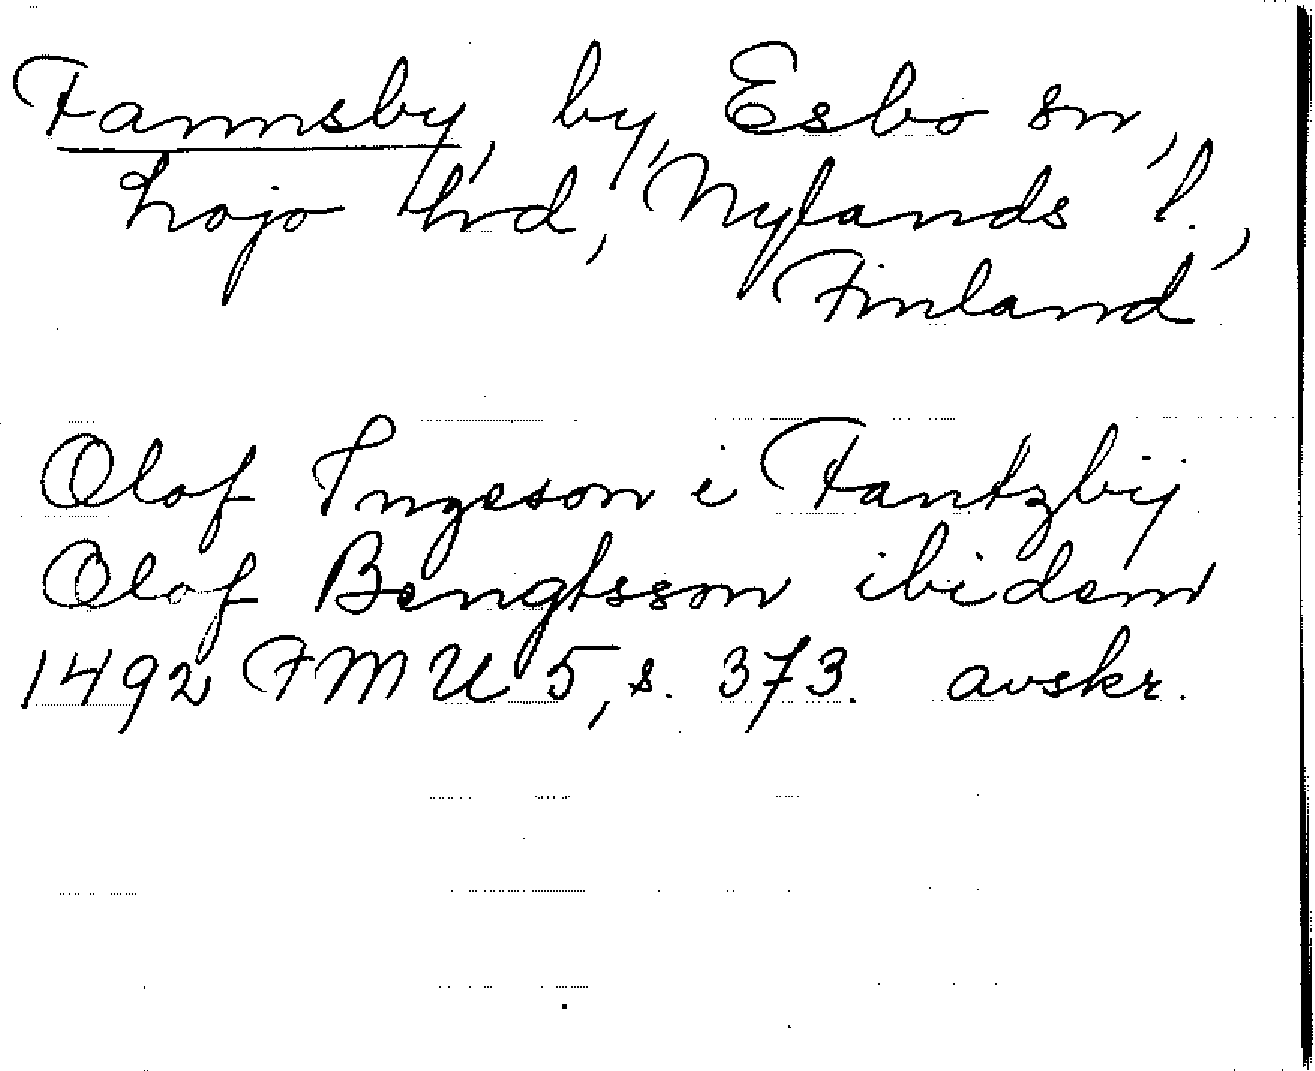 Fannsby, by, Esbo sn,
Lojo hrd, Nylands l.,
Finland
Olof Ingeson i Fantzbij
Olof Bengtsson ibidem
1492 FMU 5, s. 373. avskr.